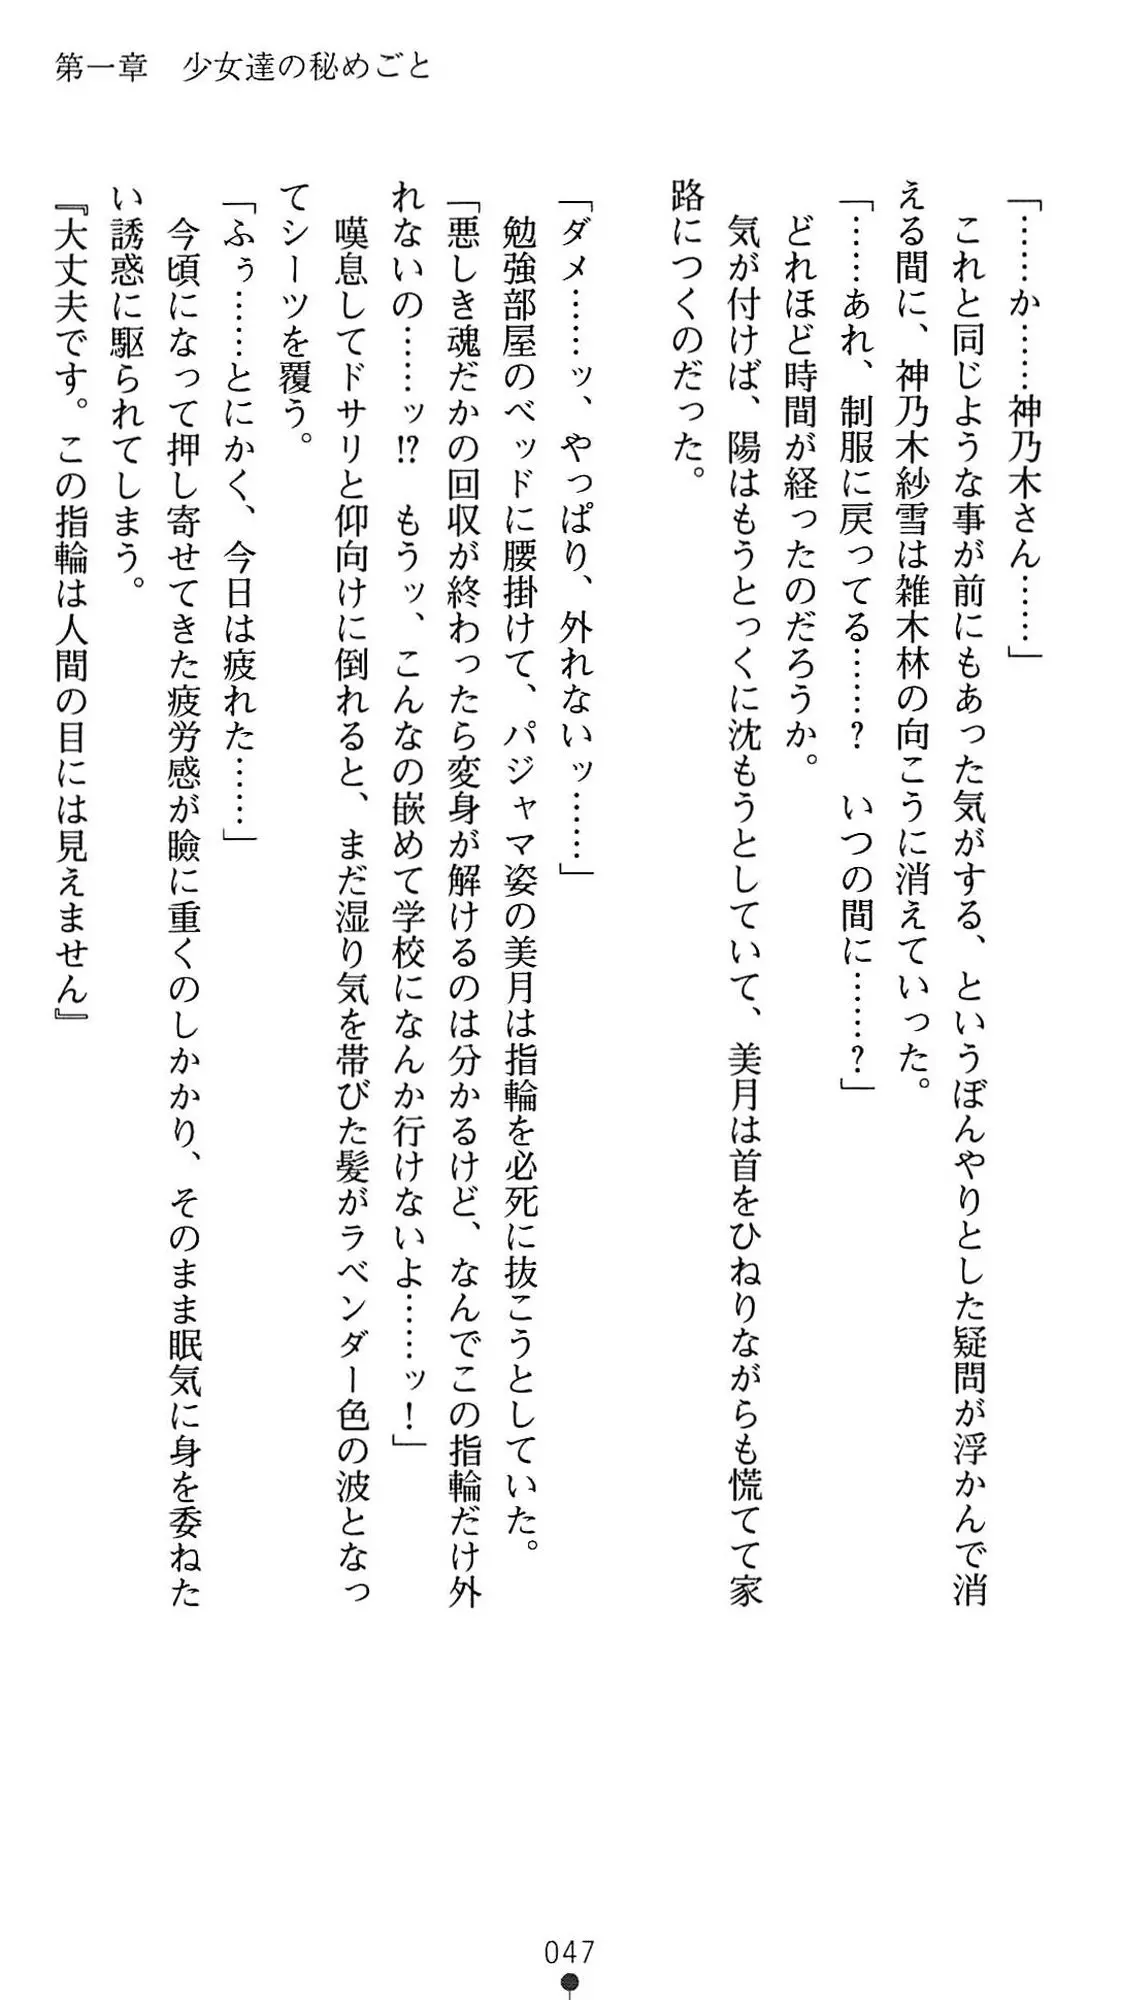 第一章　少女達の秘めごと
「……か……神乃木さん……」
　これと同じような事が前にもあった気がする、というぼんやりとした疑問が浮かんで消
える間に、神乃木紗雪は雑木林の向こうに消えていった。
「……あれ、制服に戻ってる……？　いつの間に……？」
　どれほど時間が経ったのだろうか。
　気が付けば、陽はもうとっくに沈もうとしていて、美月は首をひねりながらも慌てて家
路につくのだった。
「ダメ……ッ、やっぱり、外れないッ……」
　勉強部屋のベッドに腰掛けて、パジャマ姿の美月は指輪を必死に抜こうとしていた。
「悪しき魂だかの回収が終わったら変身が解けるのは分かるけど、なんでこの指輪だけ外
れないの……ッ!?　もうッ、こんなの嵌めて学校になんか行けないよ……ッ！」
　嘆息してドサリと仰向けに倒れると、まだ湿り気を帯びた髪がラベンダー色の波となっ
てシーツを覆う。
「ふぅ……とにかく、今日は疲れた……」
　今頃になって押し寄せてきた疲労感が瞼に重くのしかかり、そのまま眠気に身を委ねた
い誘惑に駆られてしまう。
『大丈夫です。この指輪は人間の目には見えません』
047